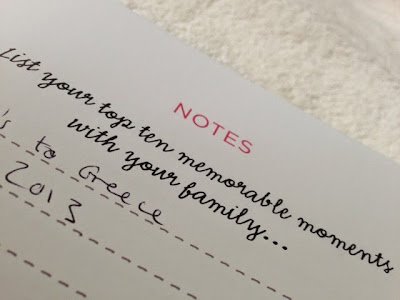 NOTES
List your top ten memorable moments
with your family...
to Greece
2013